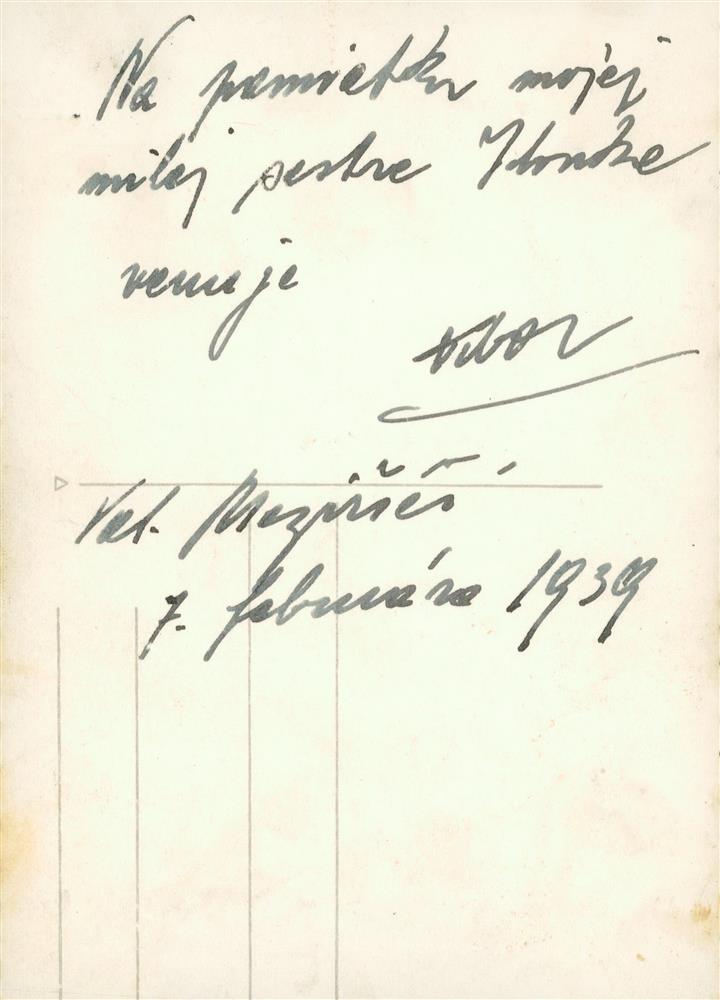 Na pamiatku mojej
milej sestre Ilonke
venuje
Tibor
Val. Meziříčí
7. februára 1939